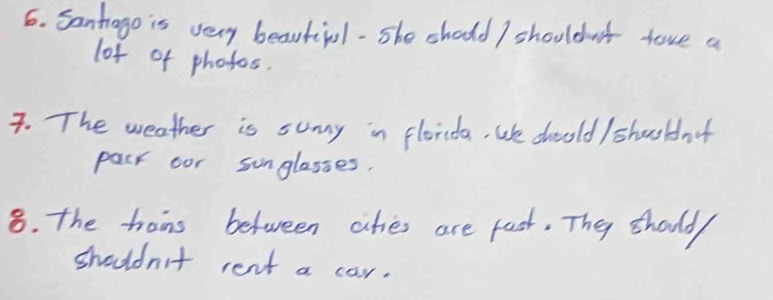 6. Santiago is very beautiful. She should / shouldn't take a
lot of photos.
7. The weather is sunny in florida. We should / shouldn't
pack our sunglasses.
8. The trains between cities are fast. They should /
shouldn't rent a car.